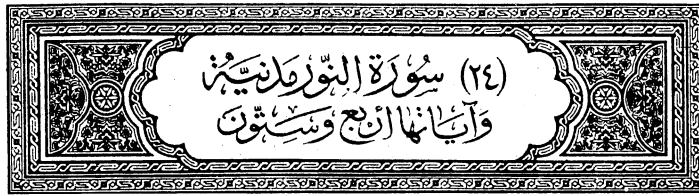 (٢٤) سُورَة النّور مَدَنيَّة
وَآيَاتها أربَع وَسِتّون